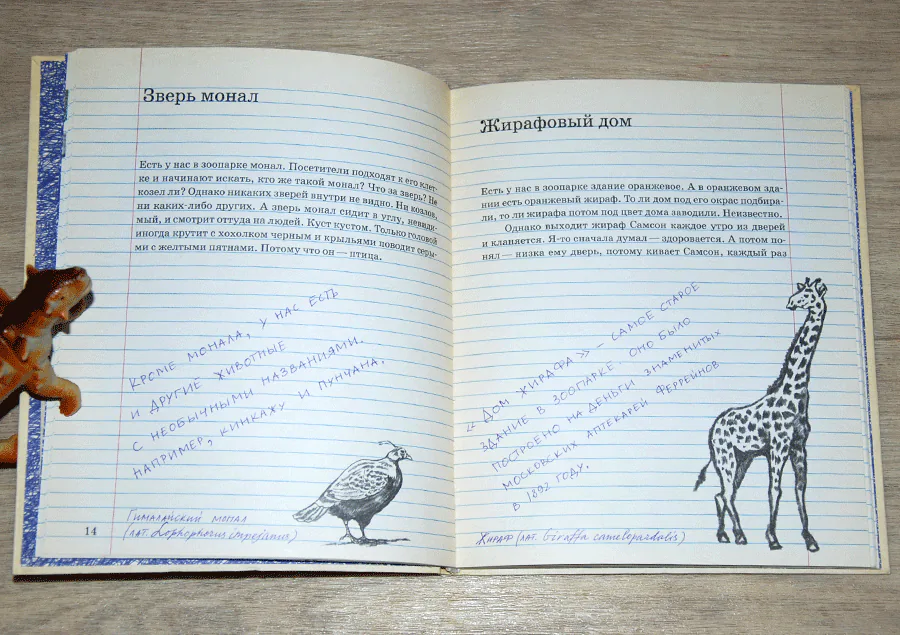 Зверь монал
Есть у нас в зоопарке монал. Посетители подходят к его клет-
ке и начинают искать, кто же такой монал? Что за зверь? Не
козел ли? Однако никаких зверей внутри не видно. Ни козлов,
ни каких-либо других. А зверь монал сидит в углу, невиди-
мый, и смотрит оттуда на людей. Куст кустом. Только головой
иногда крутит с хохолком черным и крыльями поводит серы-
ми с желтыми пятнами. Потому что он — птица.
Кроме монала, у нас есть
и другие животные
с необычными названиями.
Например, кинкажу и пунчана.
Гималайский монал
(лат. Lophophorus impejanus)
14
Жирафовый дом
Есть у нас в зоопарке здание оранжевое. А в оранжевом зда-
нии есть оранжевый жираф. То ли дом под его окрас подбира-
ли, то ли жирафа потом под цвет дома заводили. Неизвестно.
Однако выходит жираф Самсон каждое утро из дверей
и кланяется. Я-то сначала думал — здоровается. А потом по-
нял — низка ему дверь, потому кивает Самсон, каждый раз
«Дом жирафа» – самое старое
здание в зоопарке. Оно было
построено на деньги знаменитых
московских аптекарей Феррейнов
в 1892 году.
Жираф (лат. Giraffa camelopardalis)